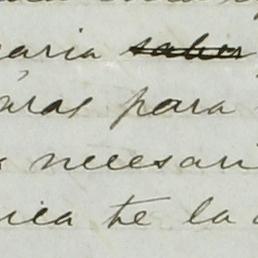 aria saber
aras para
necesari
ica te la